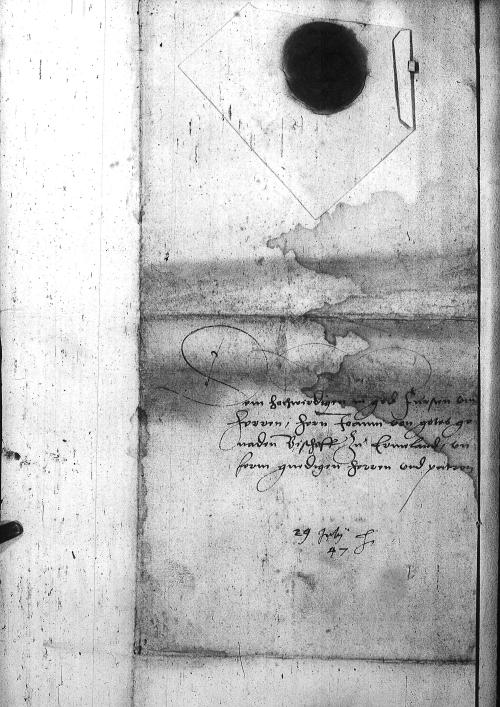 Dem hochwirdigen in got Fursten vnd
herren, hern Joannn von gotes ge
naden Bischoff Zu Ermelandt vn
serm gnedigen herren vnd patron
29 July
47